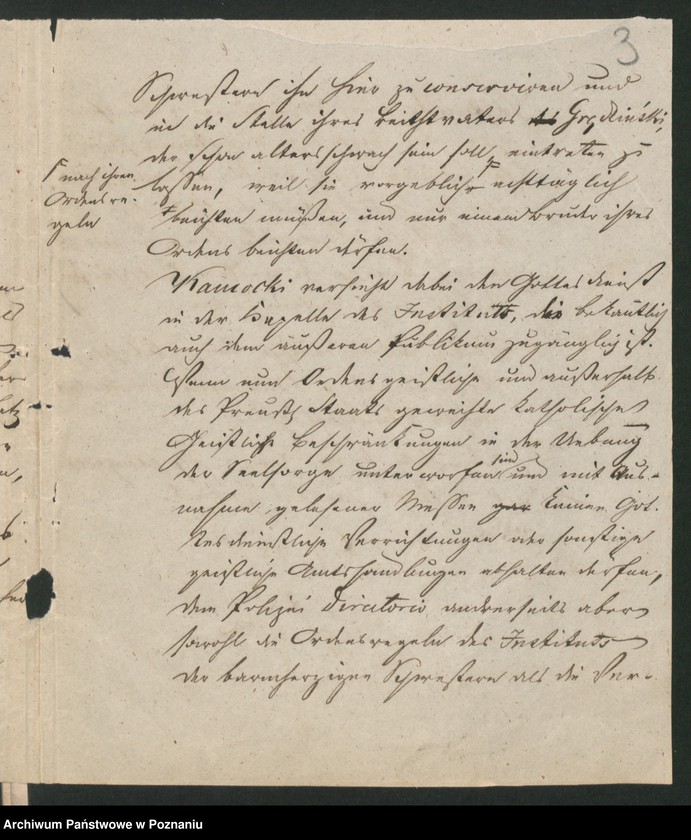 3
Schwestern ihn hier zu conserviren und
in die Stelle ihres Beichtvaters
der schon altersschwach sein soll, eintreten zu
lassen, weil sie vorgeblich ⌈ achttäglich
⌈ nach ihren
Ordensre-
geln
beichten müßen, und nur einem Bruder ihres
Ordens beichten dürfen.
Kamocki versieht dabei den Gottesdienst
in der Kapelle des Instituts, die bekantlich
auch dem äußeren Publikum zugänglich ist.
Wenn nun Ordensgeistliche und außerhalb
des Preuß. Staats geweihte katholische
Geistliche Beschränkungen in der Uebung
der Seelsorge unterworfen sind und mit Aus-
nahme gelesener Messen keinen Got-
tesdienstliche Verrichtungen oder sonstige
geistliche Amtshandlungen abhalten dürfen,
dem Polizei Directorio andrerseits aber
sowohl die Ordensregeln des Instituts
der barmherzigen Schwestern als die Ver-
Archiwum Państwowe w Poznaniu